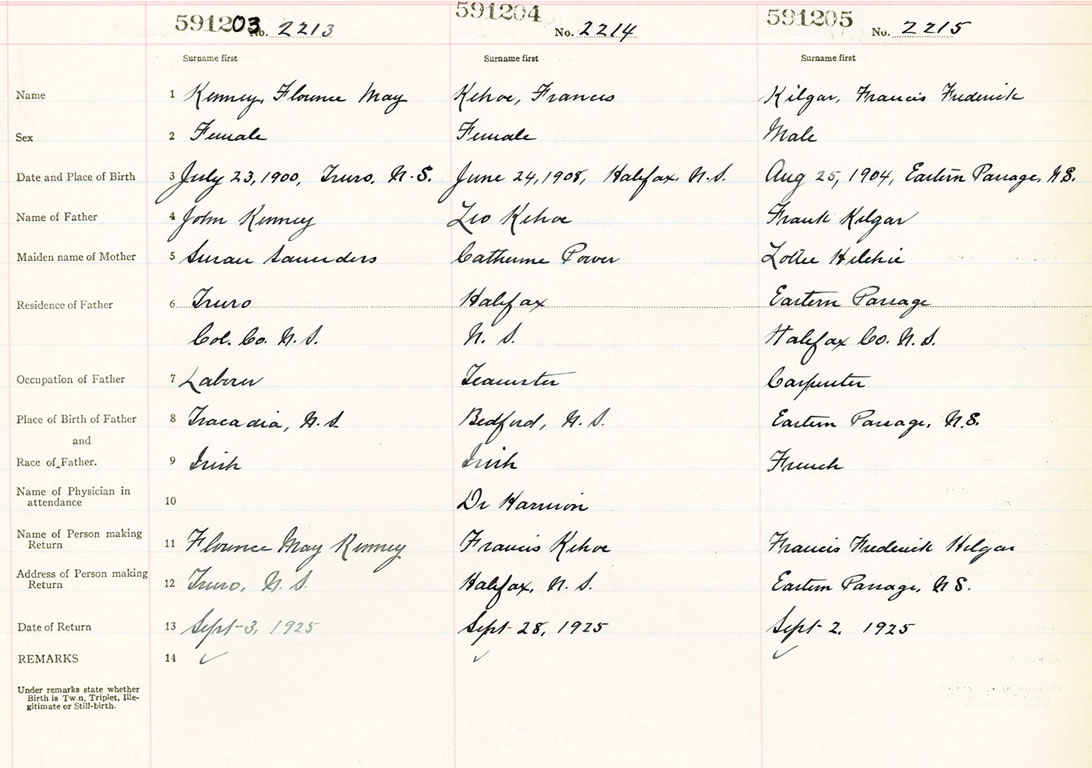 591203 591204 591205
No. 2213 No. 2214 No. 2215
Surname first Surname first Surname first
Name 1 Kenney, Florence May Kehoe, Frances Kilgar, Francis Frederick
Sex 2 Female Female Male
Date and Place of Birth 3 July 23, 1900, Truro, N.S. June 24, 1908, Halifax, N.S. Aug 25, 1904, Eastern Passage, N.S.
Name of Father 4 John Kenney Leo Kehoe Frank Kilgar
Maiden name of Mother 5 Susan Saunders Catherine Power Lottie Hilchie
Residence of Father 6 Truro Halifax Eastern Passage
Col. Co. N.S. N.S. Halifax Co. N.S.
Occupation of Father 7 Laborer Teamster Carpenter
Place of Birth of Father 8 Tracadia, N.S Bedford, N.S. Eastern Passage, N.S.
and
Race of Father. 9 Irish Irish French
Name of Physician in
attendance 10 Dr
Name of Person making
Return 11 Florence May Kenney Francis Kehoe Francis Frederick Kilgar
Address of Person making
Return 12 Truro, N.S. Halifax, N.S. Eastern Passage, N.S.
Date of Return 13 Sept-3, 1925 Sept-28, 1925 Sept-2, 1925
REMARKS 14 ✓ ✓ ✓
Under remarks state whether
Birth is Twin, Triplet, Ille-
gitimate or Still-birth.